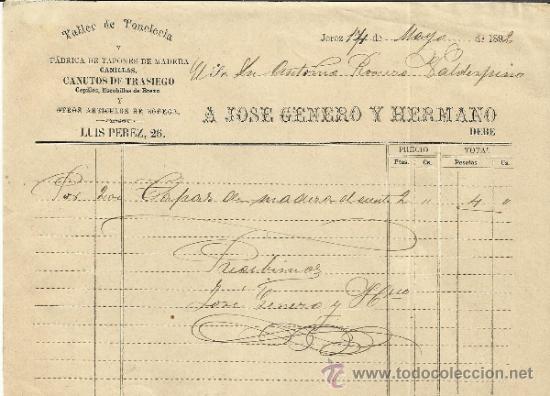 Taller de Tonelería
Y
FÁBRICA DE TAPONES DE MADERA
CANILLAS,
CANUTOS DE TRASIEGO
Cepillos, Escobillas de Brezo
Y
OTROS ARTICULOS DE BODEGA.
LUIS PEREZ, 26.
Jerez 14 de Mayo de 1892
Sr. Dn Antonio Romero Valdespino
A JOSE GENERO Y HERMANO
DEBE
PRECIO TOTAL
Ptas. Cs. Pesetas Cs.
Por 200 Tapas de madera el ciento 2 " 4 "
Recibimos
José Genero y Hno
todocoleccion.net